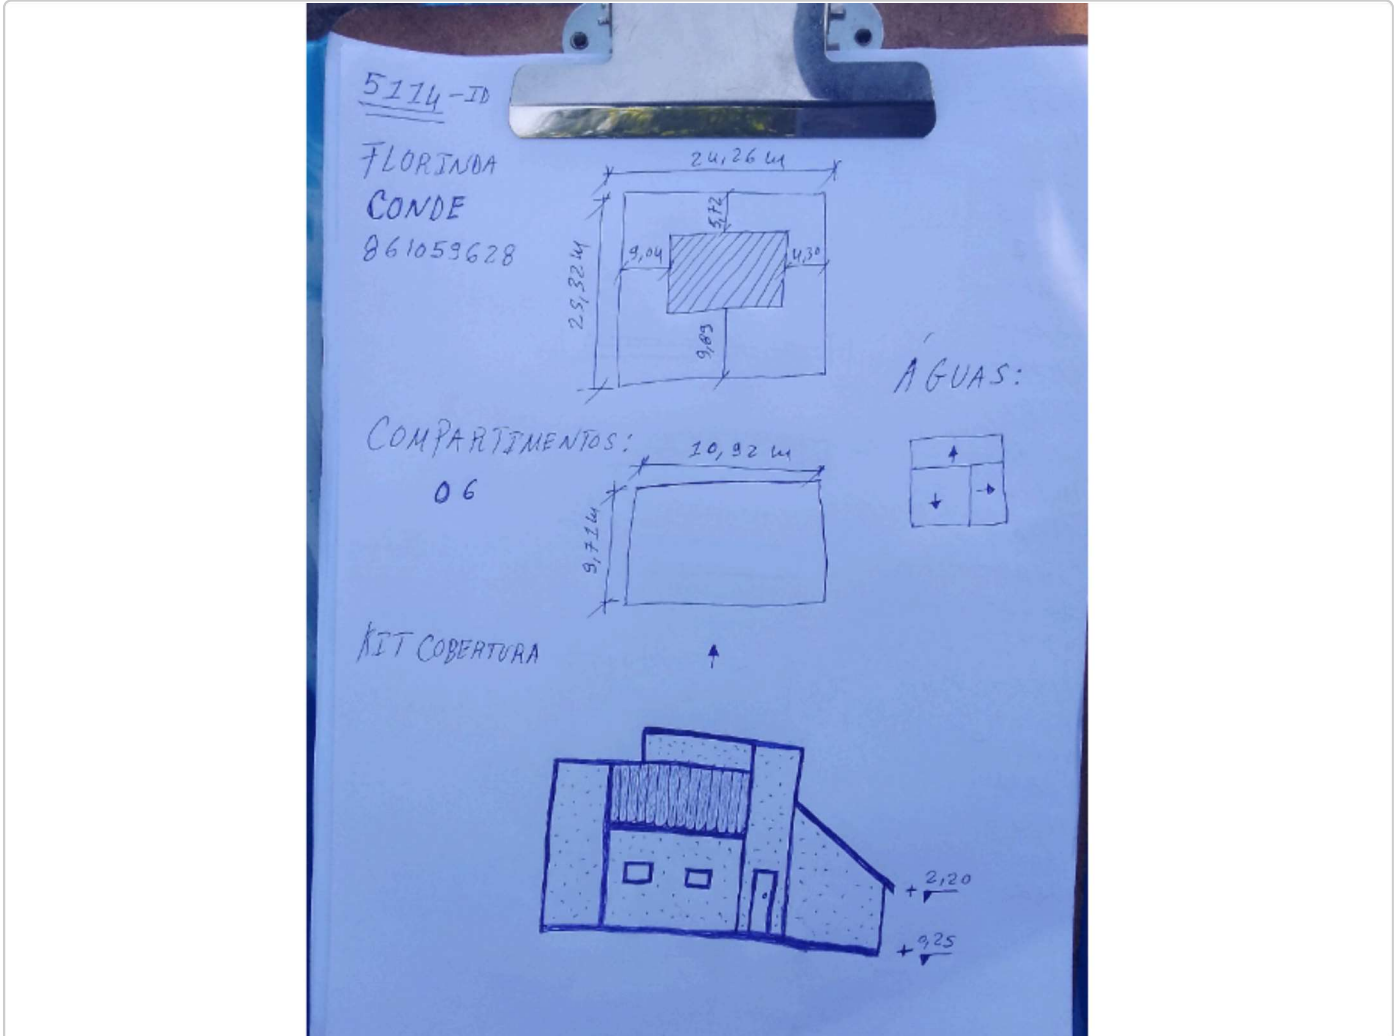 5114-ID
FLORINDA
CONDE
861059628
24,26 m
5,72
9,04
4,30
25,32 m
9,89
ÁGUAS:
COMPARTIMENTOS:
06
10,92 m
9,71 m
KIT COBERTURA
+2,20
+0,25